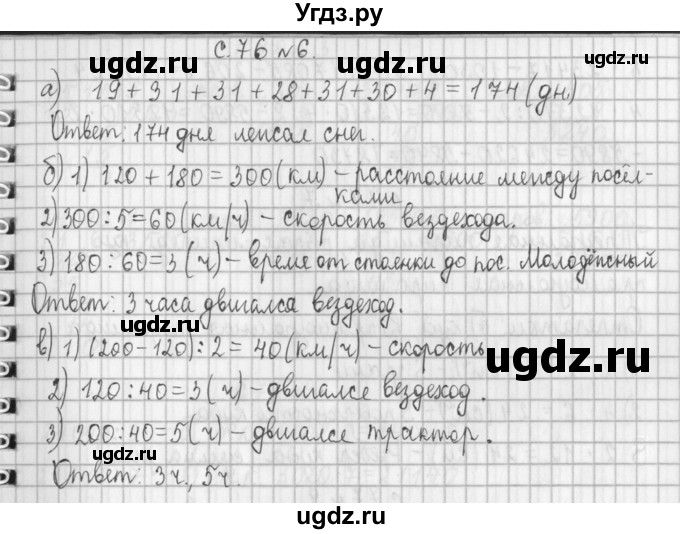 Угдз.ру
с. 76 №6.
ugdz.ru ugdz.ru
а) 19+31+31+28+31+30+4=174(дн)
Ответ: 174 дня лежал снег.
ugdz.ru ugdz.ru
б) 1) 120+180=300(км) – расстояние между посёл-
ками
2) 300:5=60(км/ч) – скорость вездехода.
ugdz.ru ugdz.ru
3) 180:60=3(ч) – время от стоянки до пос. Молодёжный
Ответ: 3 часа двигался вездеход.
ugdz.ru
в) 1) (200-120):2=40(км/ч) – скорость
ugdz.ru
2) 120:40=3(ч) – двигался вездеход.
ugdz.ru
3) 200:40=5(ч) – двигался трактор.
ugdz.ru
Ответ: 3ч., 5ч.
ugdz.ru ugdz.ru
ugdz.ru